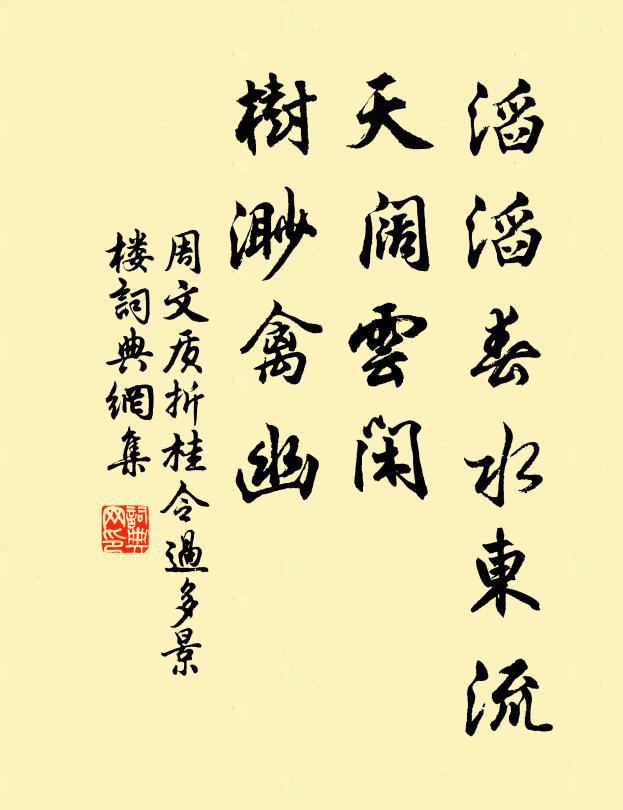 滔滔春水東流
天阔雲闲
樹渺禽幽
周文质折桂令過多景
楼詞典網集
詞典网印